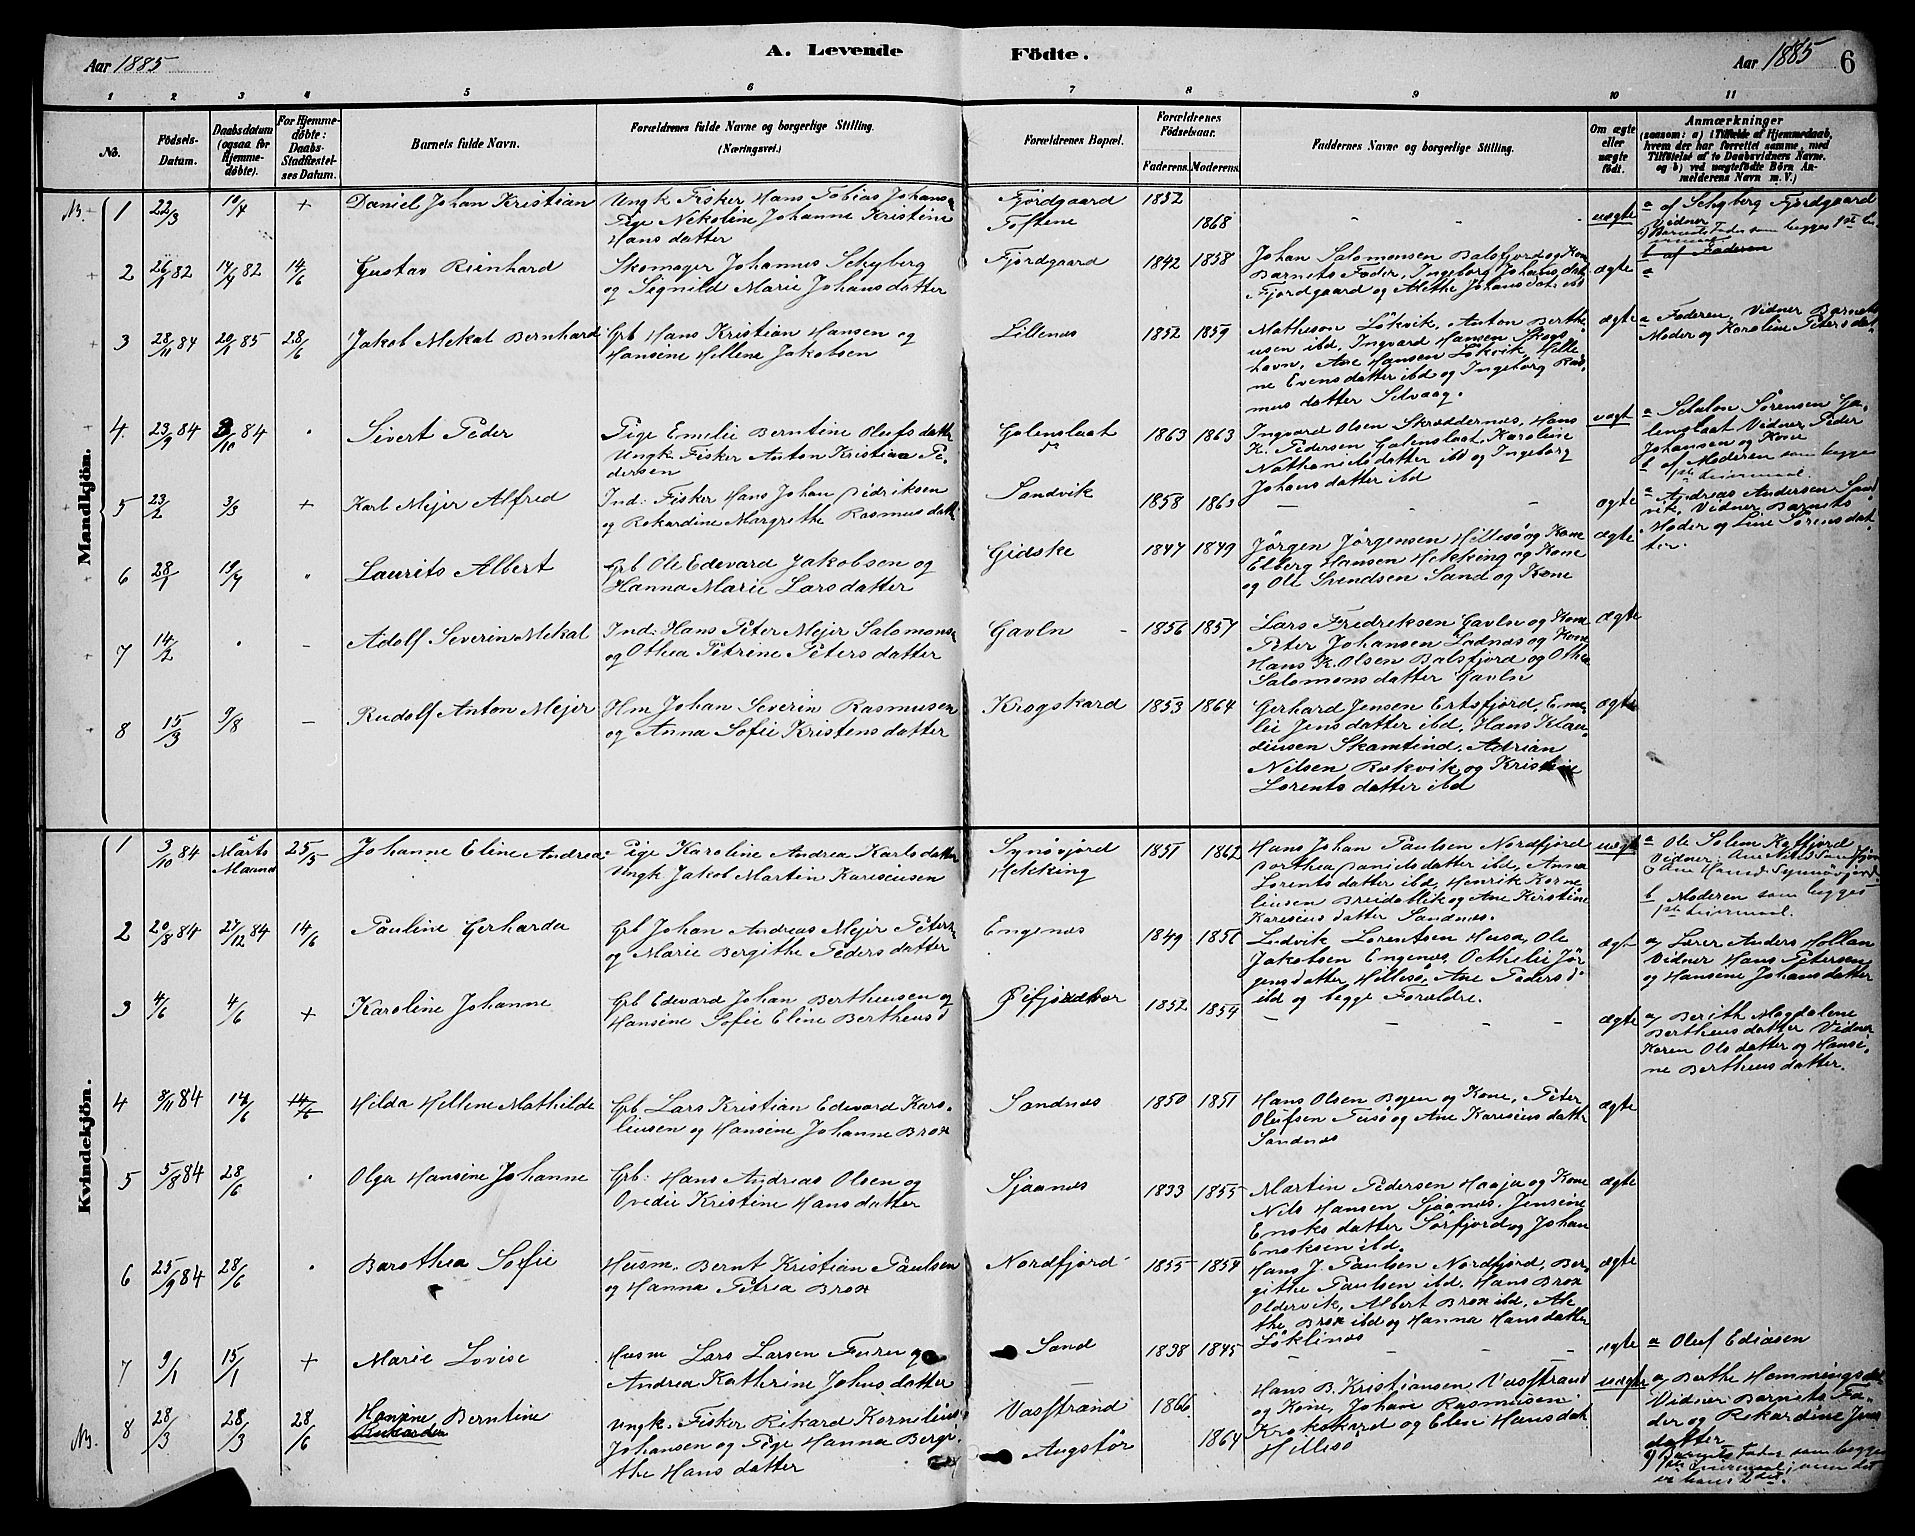 A. Levende Födte.
Aar 1885
Aar 1885 6
1 2 3 4 5 6 7 8 9 10 11
No.
Födsels-Datum.
Daabsdatum (ogsaa for Hjemmedöbte).
For Hjemmedöbte: Daabs-Stadfæstelses Datum.
Barnets fulde Navn.
Forældrenes fulde Navne og borgerlige Stilling. (Næringsvei.)
Forældrenes Bopæl.
Forældrenes Födselsaar.
Faderens. Moderens.
Faddernes Navne og borgerlige Stilling.
Om ægte eller uægte födt.
Anmærkninger
(saasom: a) i Tilfælde af Hjemmedaab, hvem der har forrettet samme, med Tilföielse af to Daabsvidners Navne, og b) ved uægtefödte Börn Anmelderens Navn m. V.)
Mandkjön.
1 22/3 10/4 + Daniel Johan Kristian
Ungk Fisker Hans Tobias Johans.
Pige Nikoline Johanne Kristine
Hansdatter
Fjordgaard
Toftene
1852
1868
uægte
a af Schyberg Fjordgaard
Vidner
b af Faderen
2 26/1 82 14/4 82 14/6 Gustav Reinhard
Skomager Johannes Schyberg
og Signild Marie Johansdatter
Fjordgaard
1842 1858
Johan Salomonsen Balsfjord og Kone
Barnets Fader, Ingeborg Johansdat
Fjordgaard og Alethe Johansdat. ibd
ægte
a
3 28/11 84 20/1 85 28/6 Jakob Mekal Bernhard
Grb Hans Kristian Hansen og
Hansine Hellene Jakobsen
Lillenes
1852 1859
Matheson Lökvik, Anton Berthe
usen ibd, Ingvard Hansen Skogs
havn, Ane Hansen Lökvik, Helle
ne Evensdatter ibd og Ingeborg Ras
musdatter Selvaag.
ægte
a Faderen, Vidner Barnets
Moder og Karoline Petersdat.
4. 23/9 84 3/10 84 Sivert Peder
Pige Emilie Berntine Olufsdatter
Ungk Fisker Anton Kristian Pe
dersen
Golenslaat
1863 1863
Ingvard Olsen Skræddernes, Hans
K. Pedersen Golenslaat, Karoline
Nathanielsdatter ibd og Ingeborg
Johansdatter ibd
uægt
a Schalon Sörensen Go
lenslaat Vidner Peder
Johansen og Kone
b af Moderen som begges
1ste Leiermaal.
5 23/2 3/3 + Karl Mejer Alfred
Ind. Fisker Hans Johan Didriksen
og Rekardine Margrethe Rasmusdatt
Sandvik
1858 1863
ægte
a Andreas Andersen Sand
vik, Vidner Barnets
Moder og Line Sörensdat
ter.
6 28/1 19/4 Laurits Albert
Grb Ole Edevard Jakobsen og
Hanna Marie Larsdatter
Gidske
1847 1849
Jörgen Jörgensen Hellesö og Kone
Elberg Hansen Hekking og Kone
og Ole Svendsen Sand og Kone
ægte
7 14/2 Adolf Severin Mekal
Ind: Hans Peter Mejer Salomons.
og Othea Petrine Petersdatter
Gavln
1856 1857
Lars Fredriksen Gavln og Kone
Peter Johansen Ladnes og Kone
Hans K. Olsen Balsfjord og Othea
Salomonsdatter Gavln
ægte
8 15/3 9/8 Rudolf Anton Mejer
Hm Johan Severin Rasmusen
og Anna Sofie Kristensdatter
Krogskard
1853 1864
Gerhard Jensen Ertsfjord, Eme
lie Jensdatter ibd, Hans Klau
diusen Skamtind, Adrian
Nilsen Rækvik og Kristine
Lorentsdatter ibd
ægte
Kvindekjön.
1 3/10 84 i Marts Maaned 25/5 Johanne Eline Andrea
Pige Karoline Andrea Karlsdatter
Ungk Jakob Martin Kariusen
Synøvjord
Hekking
1851 1862
Hans Johan Paulsen Nordfjord
Dorthea Danielsdatter ibd, Anna
Lorentsdatter ibd, Henrik Korne
liusen Breidablik og Ane Kristine
Kariusdatter Sandnes.
uægte
a Ole Solem Kattfjord
Vidner
b Moderen som begges
1ste Leiermaal.
2 20/8 84 27/12 84 14/6 Pauline Gerharda
Grb Johan Andreas Mejer Peters.
og Marie Bergithe Pedersdatter
Engenes
1849
Ludvik Lorentsen Husa, Ole
Jakobsen Engenes, Octhelie Jör
gensdatter Hellesö, Ane Pedersd
ibd og begge Forældre.
ægt
a, Lærer Anders Hollan
Vidner Hans Petersen
og Hansine Johansdatter
3 4/6 4/6 + Karoline Johanne
Grb Edevard Johan Bertheusen og
Hansine Sofie Eline Bertheusd
Øifjordbor
1852 1854
ægte
a, Berith Magdalene
Bertheusdatter Vidner
Karen Olsdatter og Hansi
ne Bertheusdatter.
4 8/11 84 14/6 14/6 Hilda Hellene Mathilde
Grb. Lars Kristian Edevard Karo
liusen og Hansine Johanne Brox
Sandnes
1850 1851
Hans Olsen Bogen og Kone, Peter
Olufsen Fusö og Ane Kariusdatter
Sandnes
ægte
5 5/8 84 28/6 Olga Hansine Johanne
Grb: Hans Andreas Olsen og
Ovedie Kristine Hansdatter
Sjaanes
1833 1855
Martin Pedersen Haaja og Kone
Nils Hansen Sjaanes, Jensine
Enoksdatter Sörfjord og Johan
Enoksen ibd.
ægte
6 25/9 84 28/6 Barothea Sofie
Husm. Bernt Kristian Paulsen
og Hanna Petrea Brox
Nordfjord
1855 1857
Hans J. Paulsen Nordfjord, Ber
githe Paulsen ibd, Hans Brox
Oldervik, Albert Brox ibd, Ale
the Brox ibd og Hanna Hansdatter
Löklines
ægte
7 9/1 15/1 + Marie Lovise
Husm Lars Larsen Furru og
Andrea Kathrine Johnsdatter
Sand
1838 1845
ægte
a Oluf Ediasen
8 28/3 28/3 28/6 Hansine Berntine
Rikarda
Ungk. Fisker Rikard Kornelius
Johansen og Pige Hanna Berge
the Hansdatter
Vasstrand
Augstör
1866
1864
Hans B. Kristiansen Vasstrand
og Kone, Johan Rasmusen
Krokskard og Eline Hansdat
Hillesö
uægte
a, Berthe Hemmingsdat
Vidner Barnets Fa
der og Rekardine Jens
datter
b) Barnets Fader som begges
1ste Leiermaal, men det
er hans 2det.